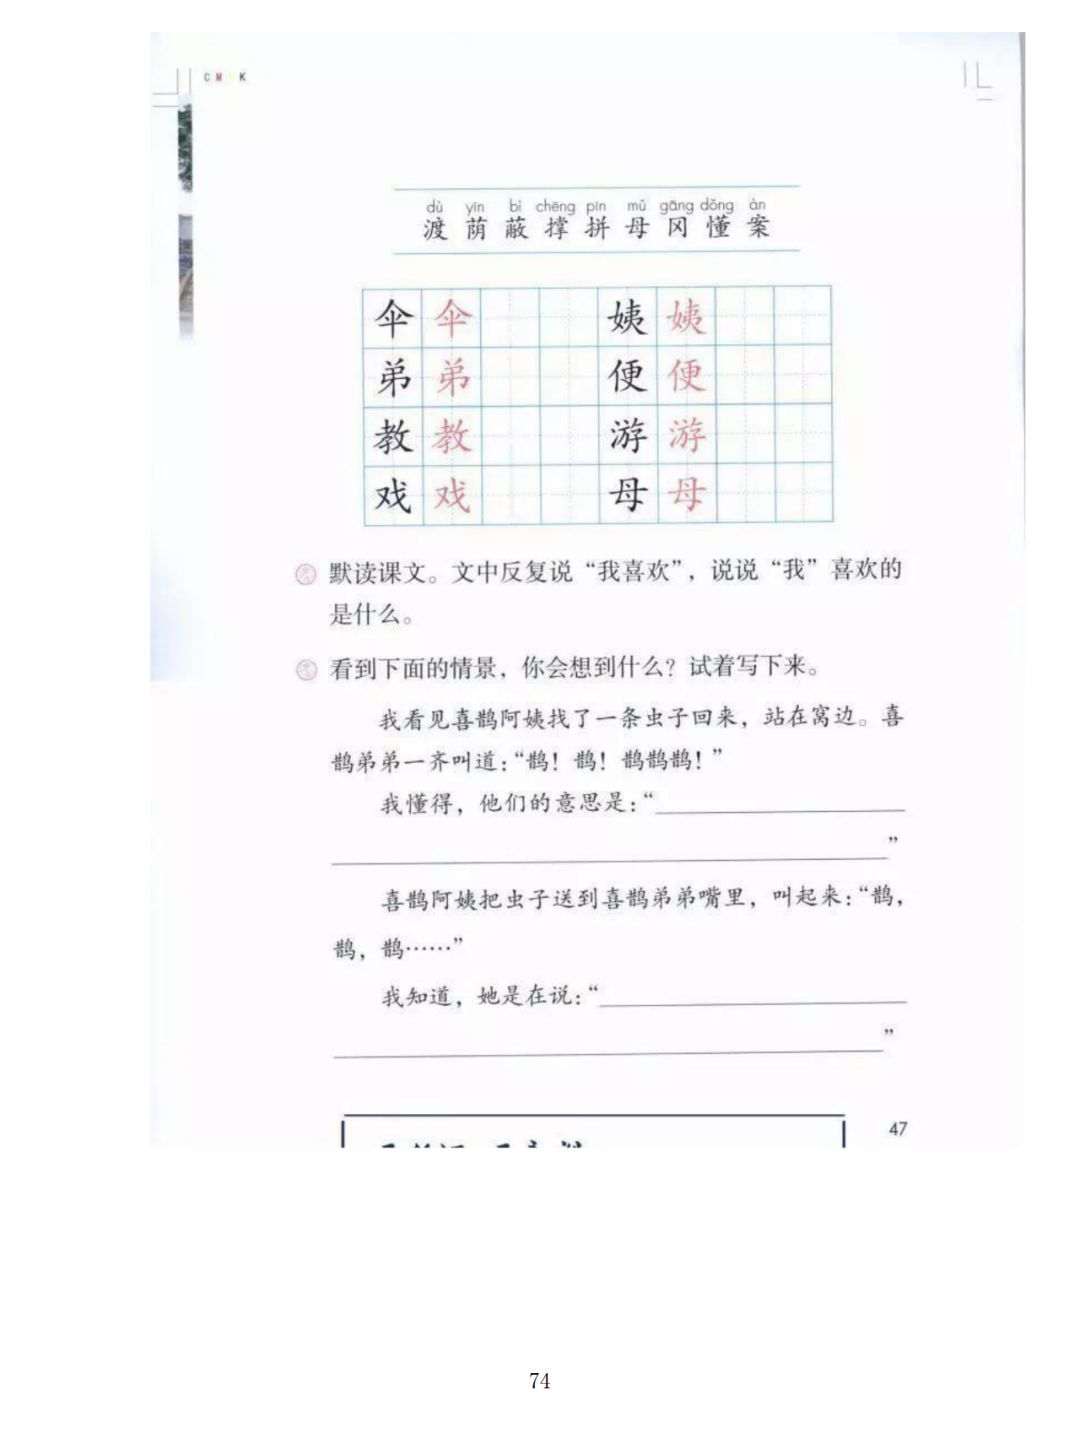 C M Y K
dù yīn bì chēng pīn mǔ gāng dǒng àn
渡 荫 蔽 撑 拼 母 冈 懂 案
伞 伞 姨 姨
弟 弟 便 便
教 教 游 游
戏 戏 母 母
默读课文。文中反复说“我喜欢”，说说“我”喜欢的
是什么。
看到下面的情景，你会想到什么？试着写下来。
我看见喜鹊阿姨找了一条虫子回来，站在窝边。喜
鹊弟弟一齐叫道：“鹊！鹊！鹊鹊鹊！”
我懂得，他们的意思是：“
”
喜鹊阿姨把虫子送到喜鹊弟弟嘴里，叫起来：“鹊，
鹊，鹊……”
我知道，她是在说：“
”
47
74